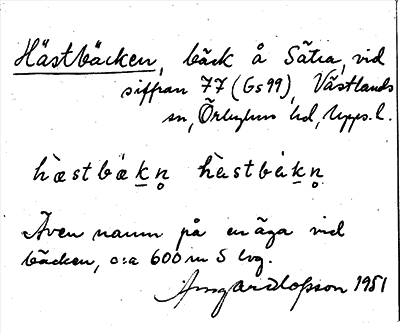 Hästbäcken, bäck å Sätra, vid
siffran 77 (Gs99), Västlands
sn, Örbyhus hd, Upps. l.
hæstbækn̥ hàstbàkn̥
Även namn på en äga vid
bäcken, c:a 600 m S lvg.
Olofsson 1951